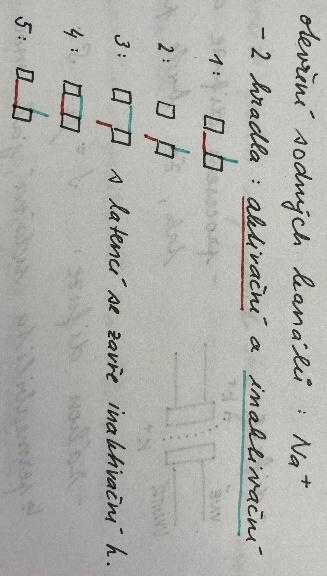 otevření sodných kanálů : Na⁺
- 2 hradla : aktivační a inaktivační
1:
2:
3: s latencí se zavře inaktivační h.
4:
5: